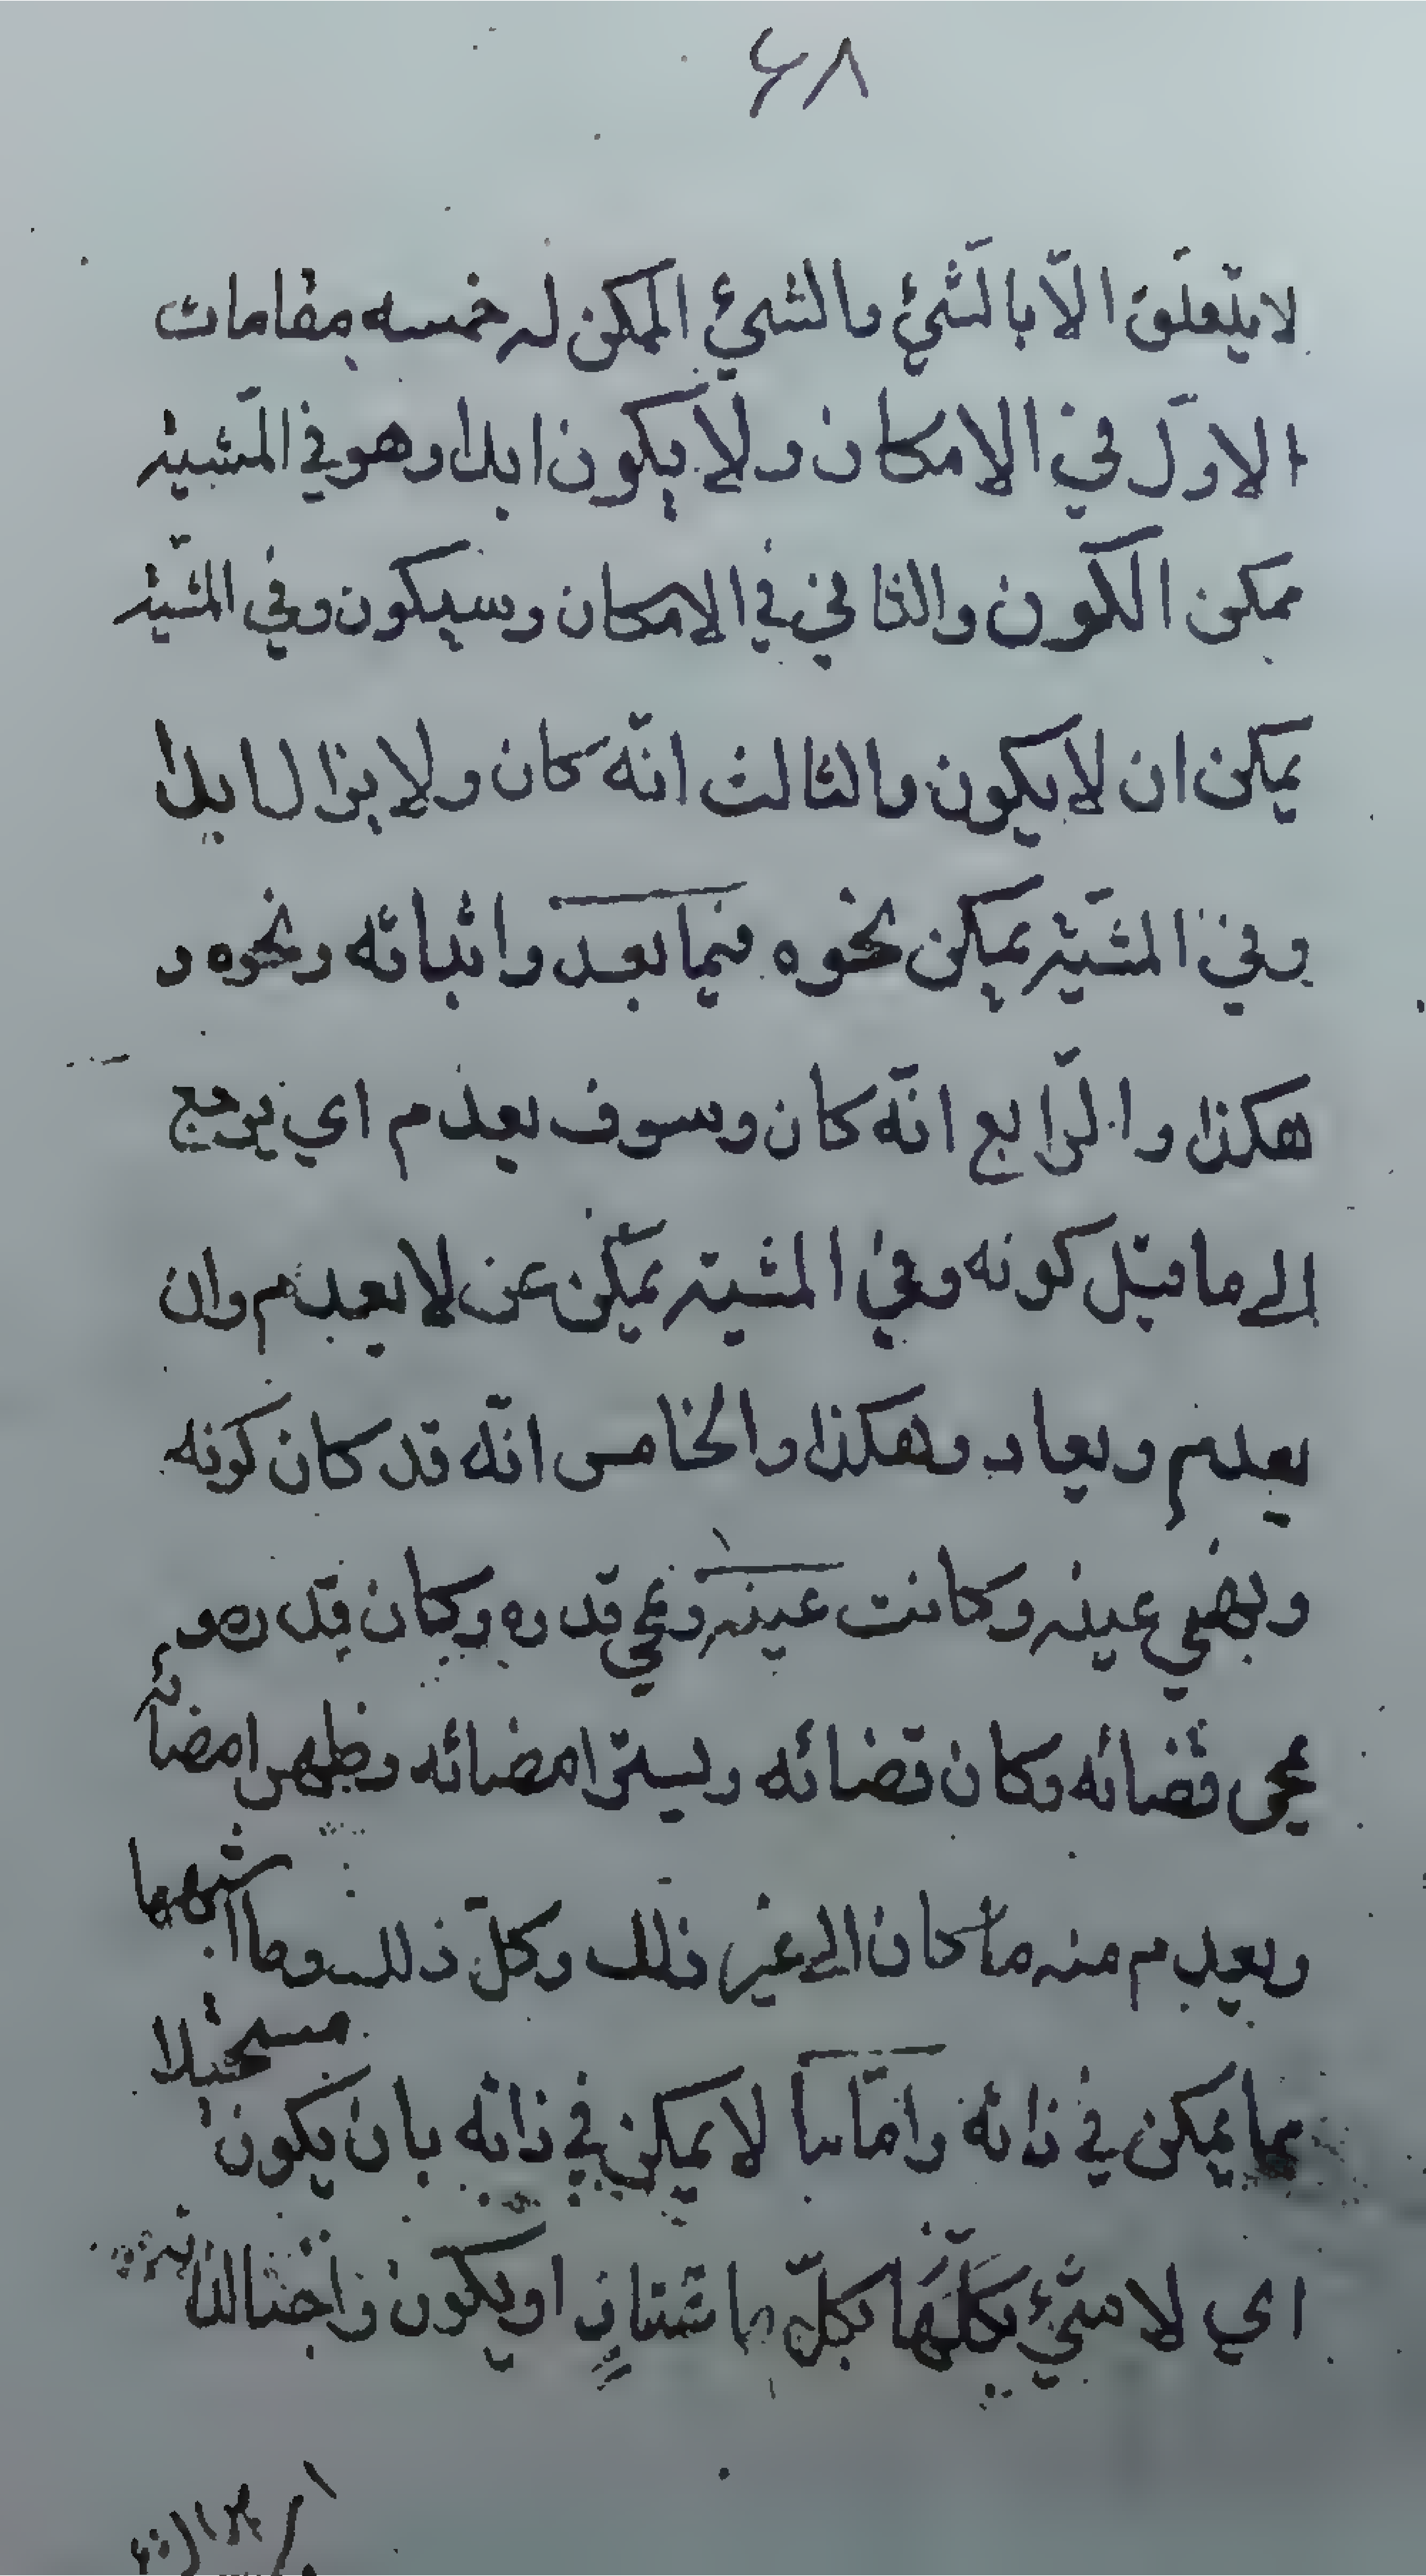 ۶۸
لا يتعلّق الّا بالشّئ والشئ الممكن له خمسه مقامات
الاوّل في الامكان ولا يكون ابدا وهو في المشّية
ممكن الكون والثاني في الامكان وسيكون وفي المشيّة
يمكن ان لا يكون والثالث انّه كان ولا يزال ابدا
وفي المشيّة يمكن نحوه فيما بعد واثباته ونحوه و
هكذا والرّابع انّه كان وسوف يعدم اي يرجع
الى ما قبل كونه وفي المشية يمكن عن لا يعدم وان
يعدم ويعاد وهكذا والخامس انّه قد كان كونه
وبقي عينه وكانت عينه ومحي قدره وكان قدره و
محى قضائه وكان قضائه ويستر امضائه وظهر امضائه
ويعدم منه ما كان الى غير ذلك وكلّ ذلك وما اشبهها
مما يمكن في ذاته وامّا ما لا يمكن في ذاته بان يكون مستحيلا
اي لا شئ بكلّها بكلّ ما شئنا او يكون واجبا لذاته